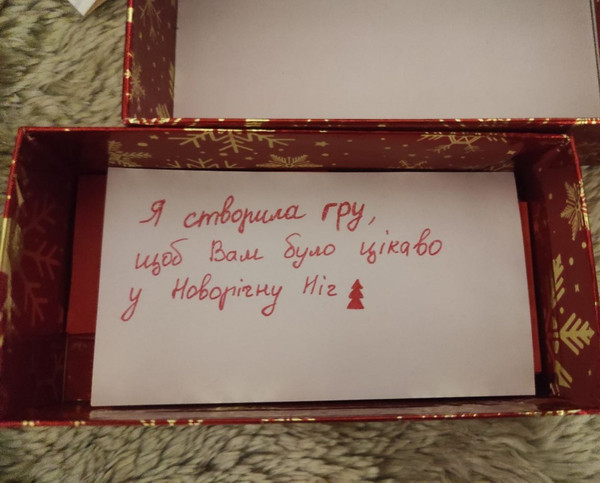 Я створила гру,
щоб Вам було цікаво
у Новорічну Ніч